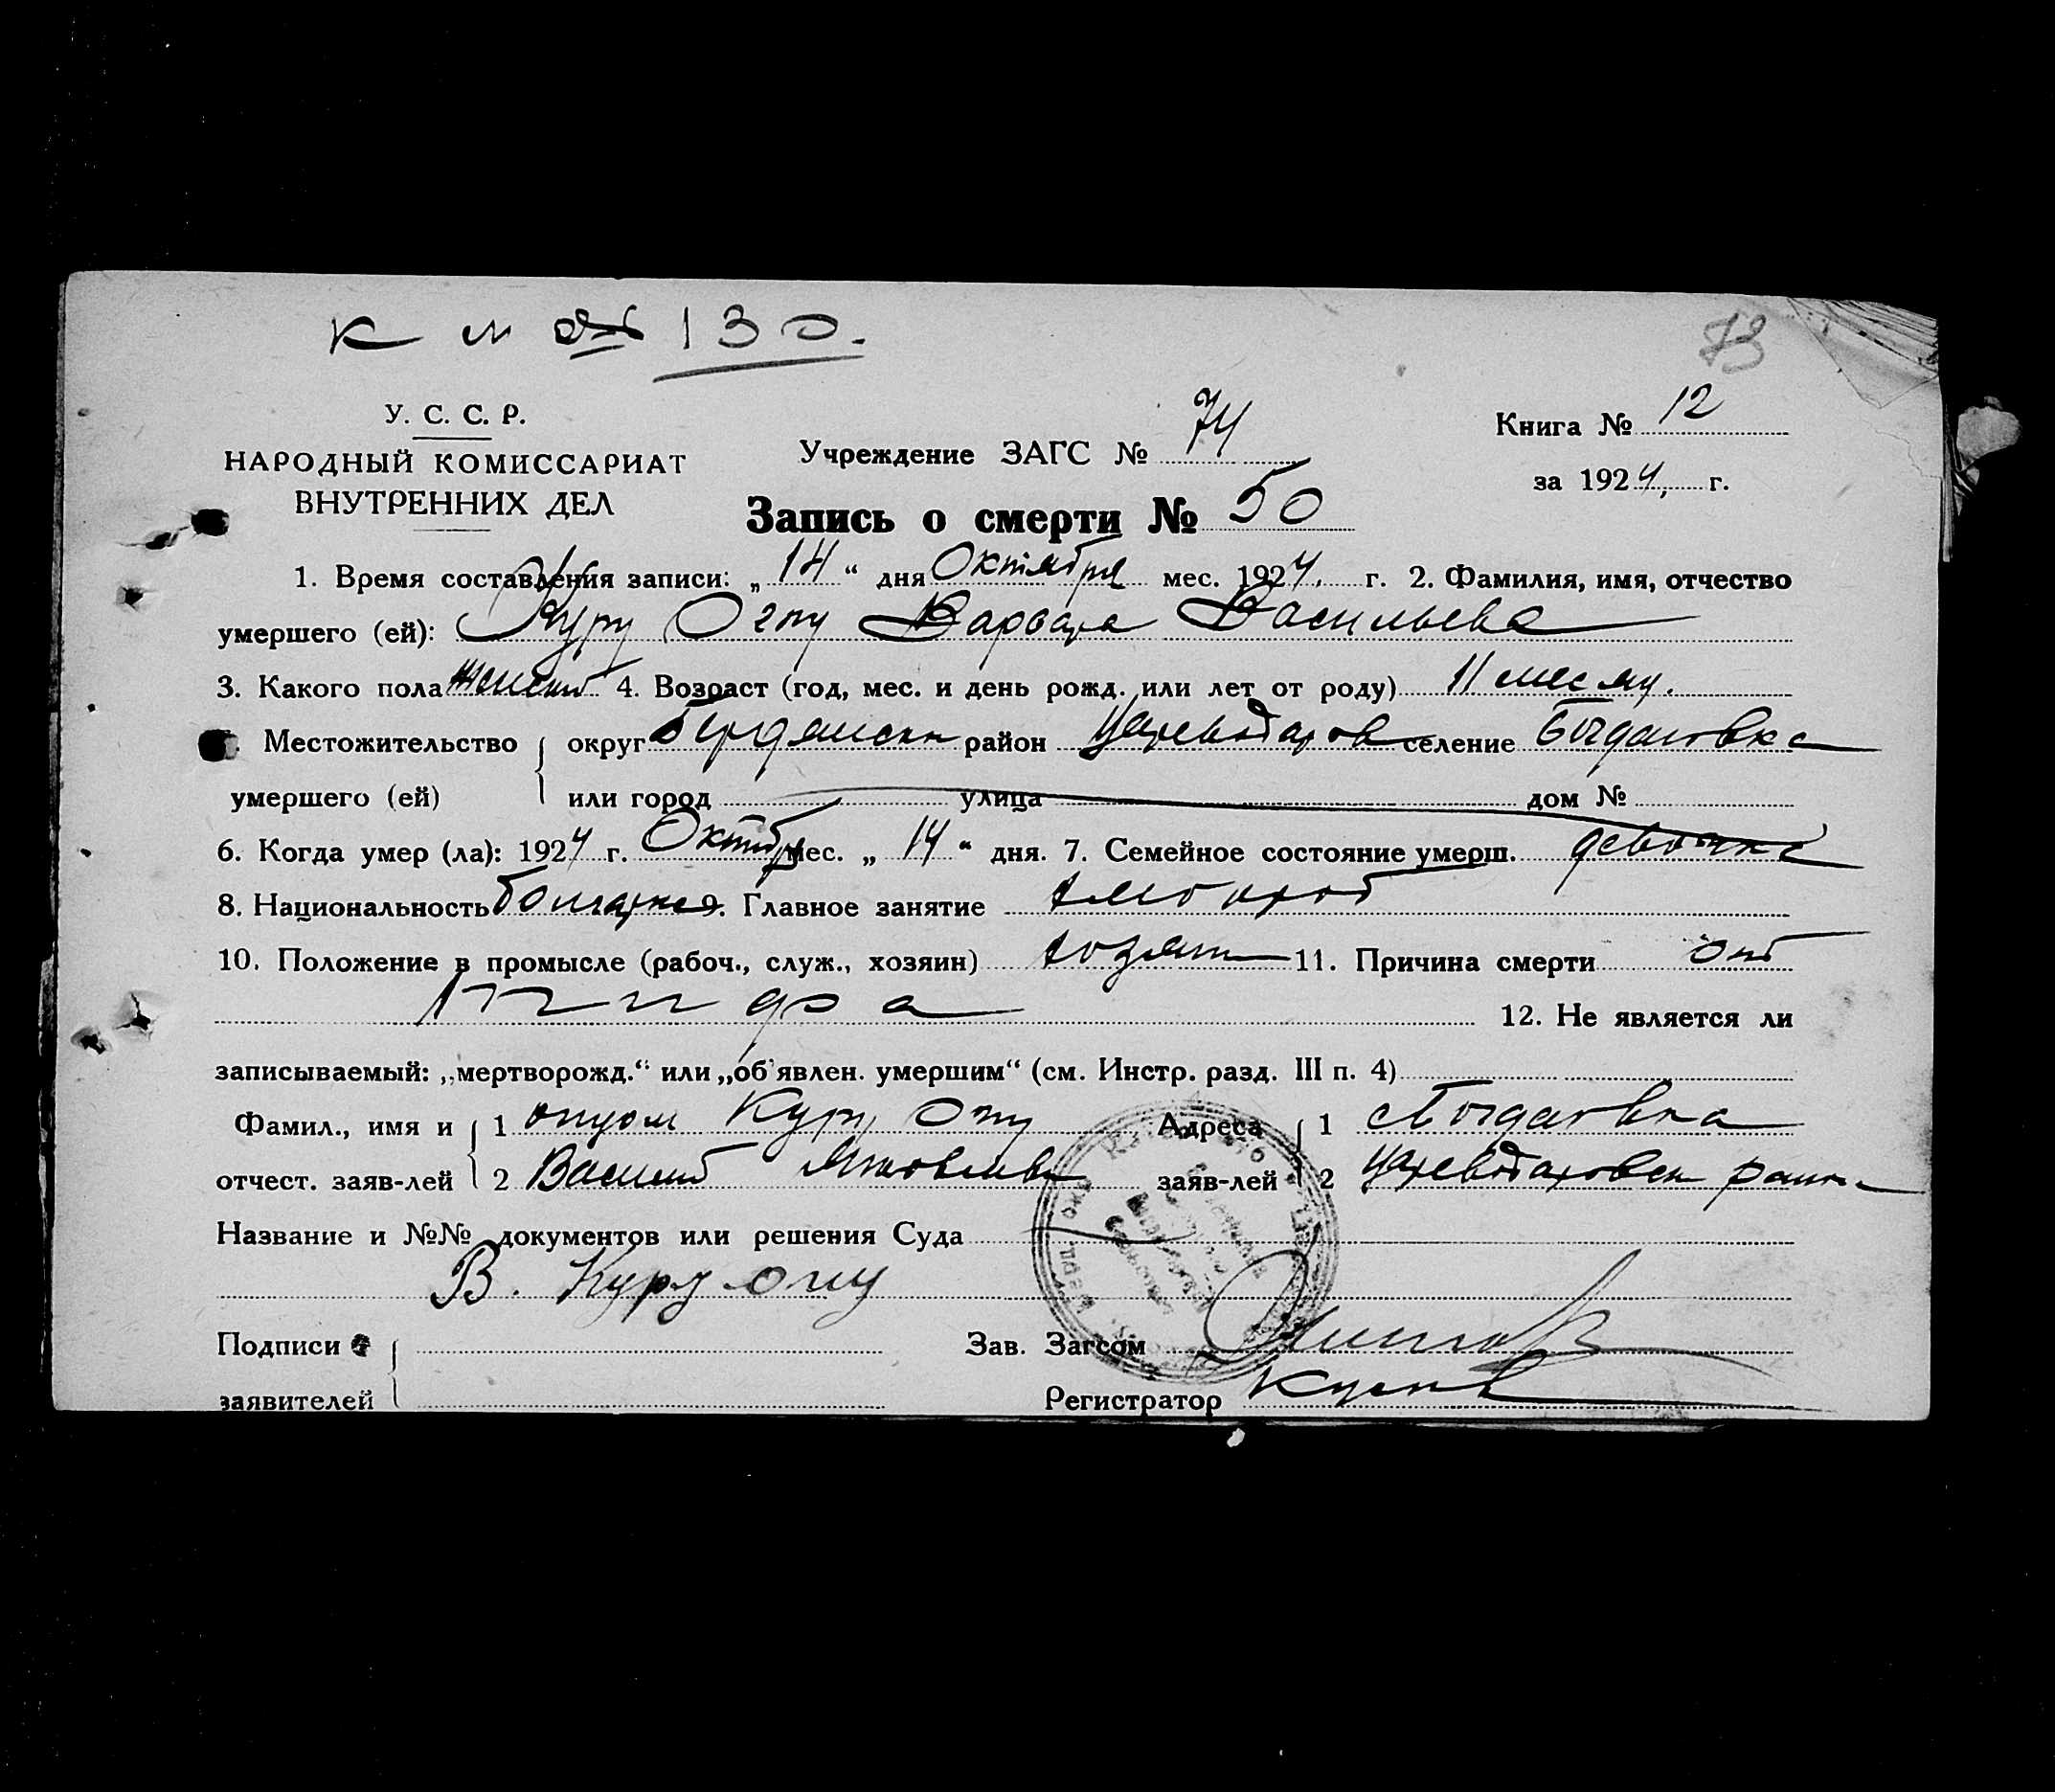 К № 130.
73
У. С. С. Р.
НАРОДНЫЙ КОМИССАРИАТ
ВНУТРЕННИХ ДЕЛ
Учреждение ЗАГС № 74
Книга № 12
за 1924 г.
Запись о смерти № 50
1. Время составления записи: „14“ дня Октября мес. 1924 г. 2. Фамилия, имя, отчество
умершего (ей): Куру Оглу Варвара Васильева
3. Какого пола женский 4. Возраст (год, мес. и день рожд. или лет от роду) 11 месяц.
Местожительство округ Бердянский район Цареводаров селение Богдановка
умершего (ей) или город улица дом №
6. Когда умер (ла): 1924 г. Октябр мес. „14“ дня. 7. Семейное состояние умерш. девочка
8. Национальность болгарка 9. Главное занятие хлебороб
10. Положение в промысле (рабоч., служ., хозяин) хозяин 11. Причина смерти от
12. Не является ли
записываемый: „мертворожд.“ или „об'явлен. умершим“ (см. Инстр. разд. III п. 4)
Фамил., имя и 1 Куру Оглу Адреса 1 с Богдановка
отчест. заяв-лей 2 Василий Яковлевич заяв-лей 2 Цареводаровск района
Название и №№ документов или решения Суда
В. Куру оглу
Подписи Зав. Загсом
заявителей Регистратор